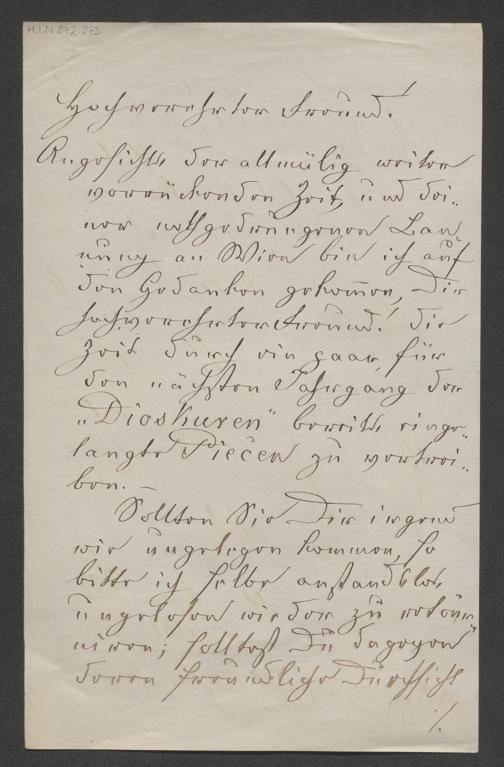 H.I.N. 242.273
Hochverehrter Freund!
Angesichts der allmälig weiter
vorrückenden Zeit, und dei-
ner nothgedrungenen Ban-
nung an Wien bin ich auf
den Gedanken gekommen, Dir
hochverehrter Freund! die
Zeit durch ein paar, für
den nächsten Jahrgang der
„Dioskuren" bereits einge-
langte Piècen zu vertrei-
ben. —
Sollten Sie Dir irgend
wie ungelegen kommen, so
bitte ich selbe anstandslos
ungelesen wieder zu retour-
niren; solltest Du dagegen
deren freundliche Durchsicht
./.